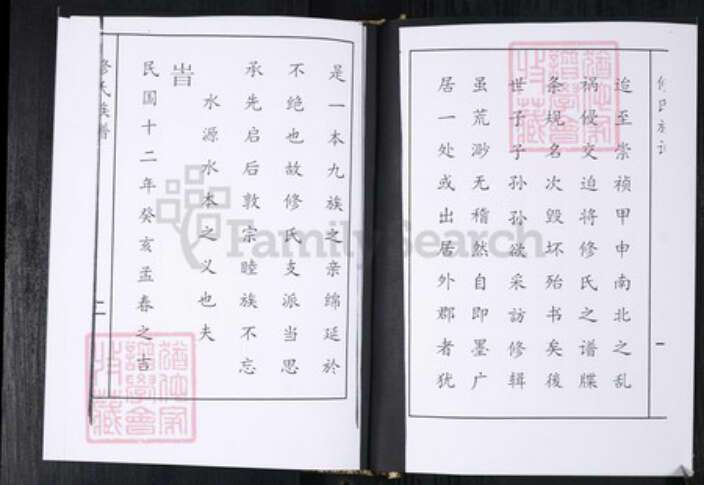 修氏族谱
一
迨至崇祯甲申南北之乱
祸侵交迫将修氏之谱牒
条规名次毁坏殆书矣後
世子子孙孙欲采訪修辑
虽荒渺无稽然自即墨广
居一处或出居外郡者犹
是一本九族之亲绵延於
不绝也故修氏支派当思
承先启后敦宗睦族不忘
水源水本之义也夫
旹
民国十二年癸亥孟春之吉
修氏族谱
二
FamilySearch